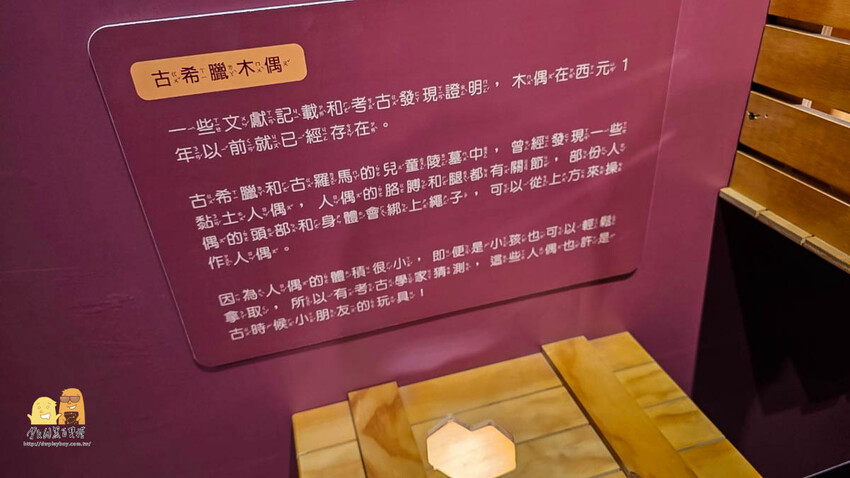 古希臘木偶
一些文獻記載和考古發現證明，木偶在西元1
年以前就已經存在。
古希臘和古羅馬的兒童陵墓中，曾經發現一些
黏土人偶，人偶的胳膊和腿都有關節，部份人
偶的頭部和身體會綁上繩子，可以從上方來操
作人偶。
因為人偶的體積很小，即便是小孩也可以輕鬆
拿取，所以有考古學家猜測，這些人偶也許是
古時候小朋友的玩具！
http://dwplayboy.com.tw/